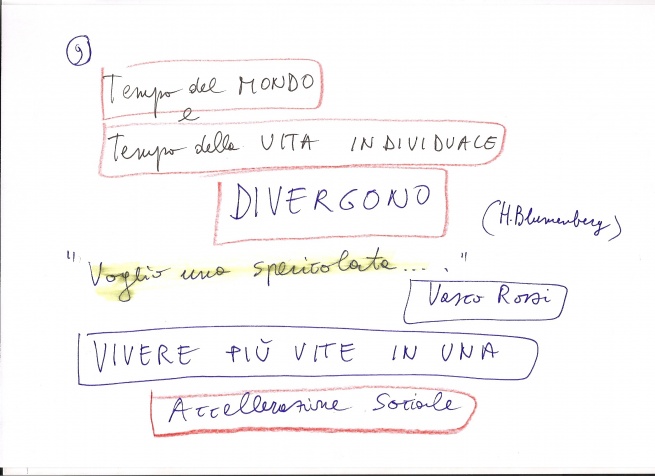 9
Tempo del MONDO
e
Tempo della VITA INDIVIDUALE
DIVERGONO
(H. Blumenberg)
"Voglio una spericolata...."
Vasco Rossi
VIVERE PIÙ VITE IN UNA
Accellerazione Sociale